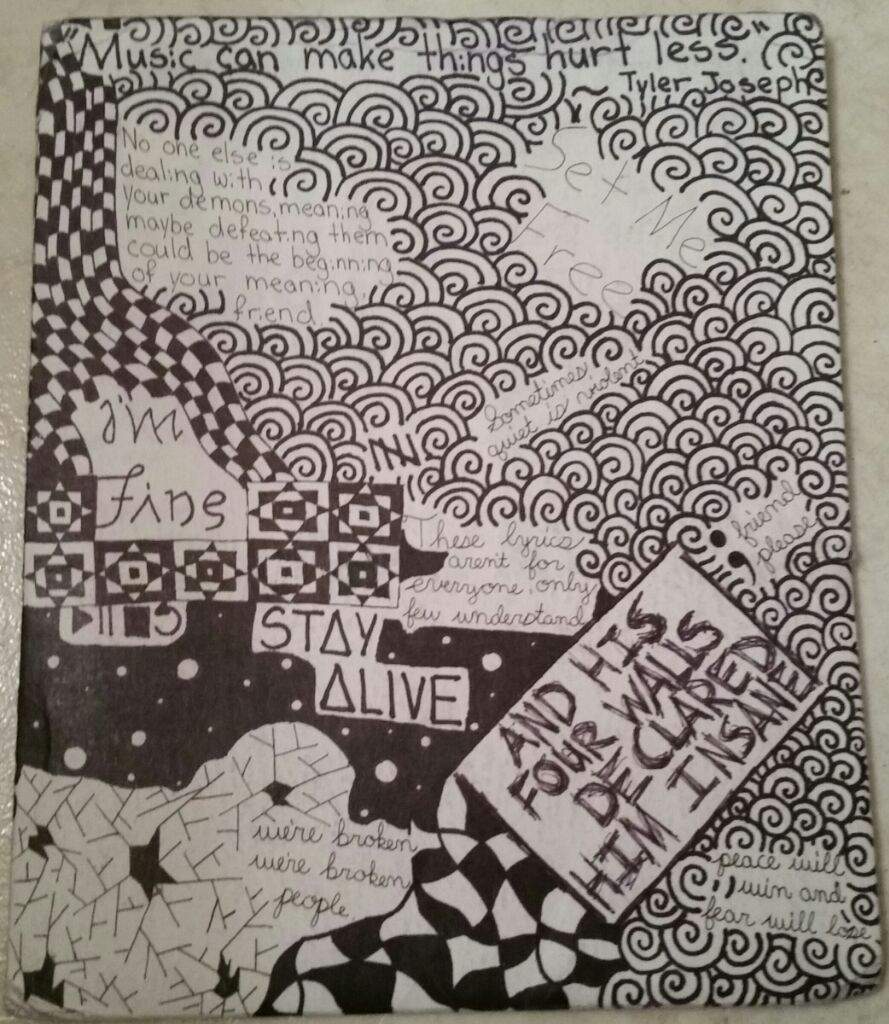 "Music can make things hurt less."
~ Tyler Joseph
No one else is
dealing with
your demons, meaning
maybe defeating them
could be the beginning
of your meaning,
friend.
Set Me
Free
Sometimes
quiet is violent
I'M
Fine
IN
These lyrics
aren't for
everyone, only
few understand
friend
please
STΔY
ΔLIVE
AND HIS
FOUR WALLS
DECLARED
HIM INSANE
we're broken
we're broken
people
peace will
win and
fear will lose